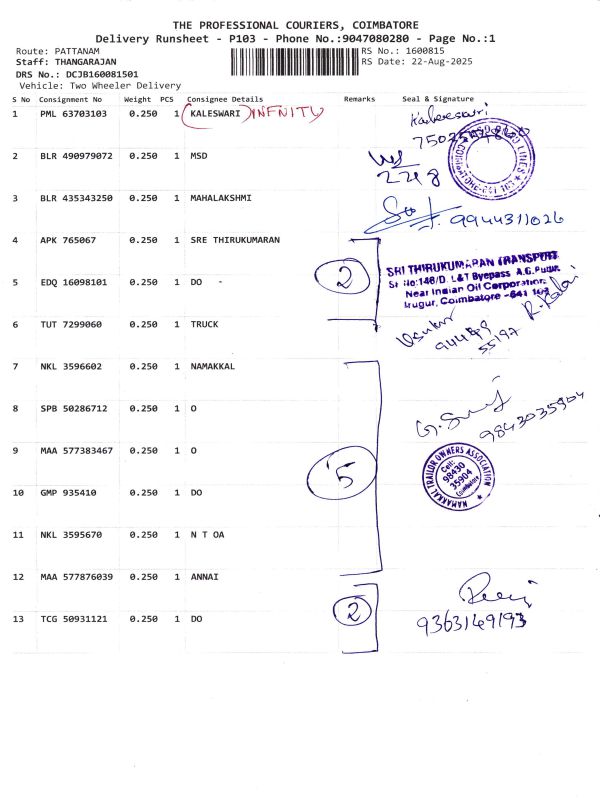 THE PROFESSIONAL COURIERS, COIMBATORE
Delivery Runsheet - P103 - Phone No.:9047080280 - Page No.:1
Route: PATTANAM
RS No.: 1600815
Staff: THANGARAJAN
RS Date: 22-Aug-2025
DRS No.: DCJB160081501
Vehicle: Two Wheeler Delivery
S No Consignment No Weight PCS Consignee Details Remarks Seal & Signature
1 PML 63703103 0.250 1 KALESWARI INFNITY
Kaleeswari
2 BLR 490979072 0.250 1 MSD
3 BLR 435343250 0.250 1 MAHALAKSHMI
9944311026
4 APK 765067 0.250 1 SRE THIRUKUMARAN
2
SRI THIRUKUMARAN TRANSPORT
Sf No:146/D. L&T Byepass A.G.Pudur
Near Indian Oil Corporation,
Irugur, Coimbatore -641 103
5 EDQ 16098101 0.250 1 DO -
6 TUT 7299060 0.250 1 TRUCK
55197
7 NKL 3596602 0.250 1 NAMAKKAL
8 SPB 50286712 0.250 1 O
9843035904
9 MAA 577383467 0.250 1 O
5
NAMAKKAL TRAILOR OWNERS ASSOCIATION
Cell:
98430
35904
Coimbatore
10 GMP 935410 0.250 1 DO
11 NKL 3595670 0.250 1 N T OA
12 MAA 577876039 0.250 1 ANNAI
2
13 TCG 50931121 0.250 1 DO
9363149193